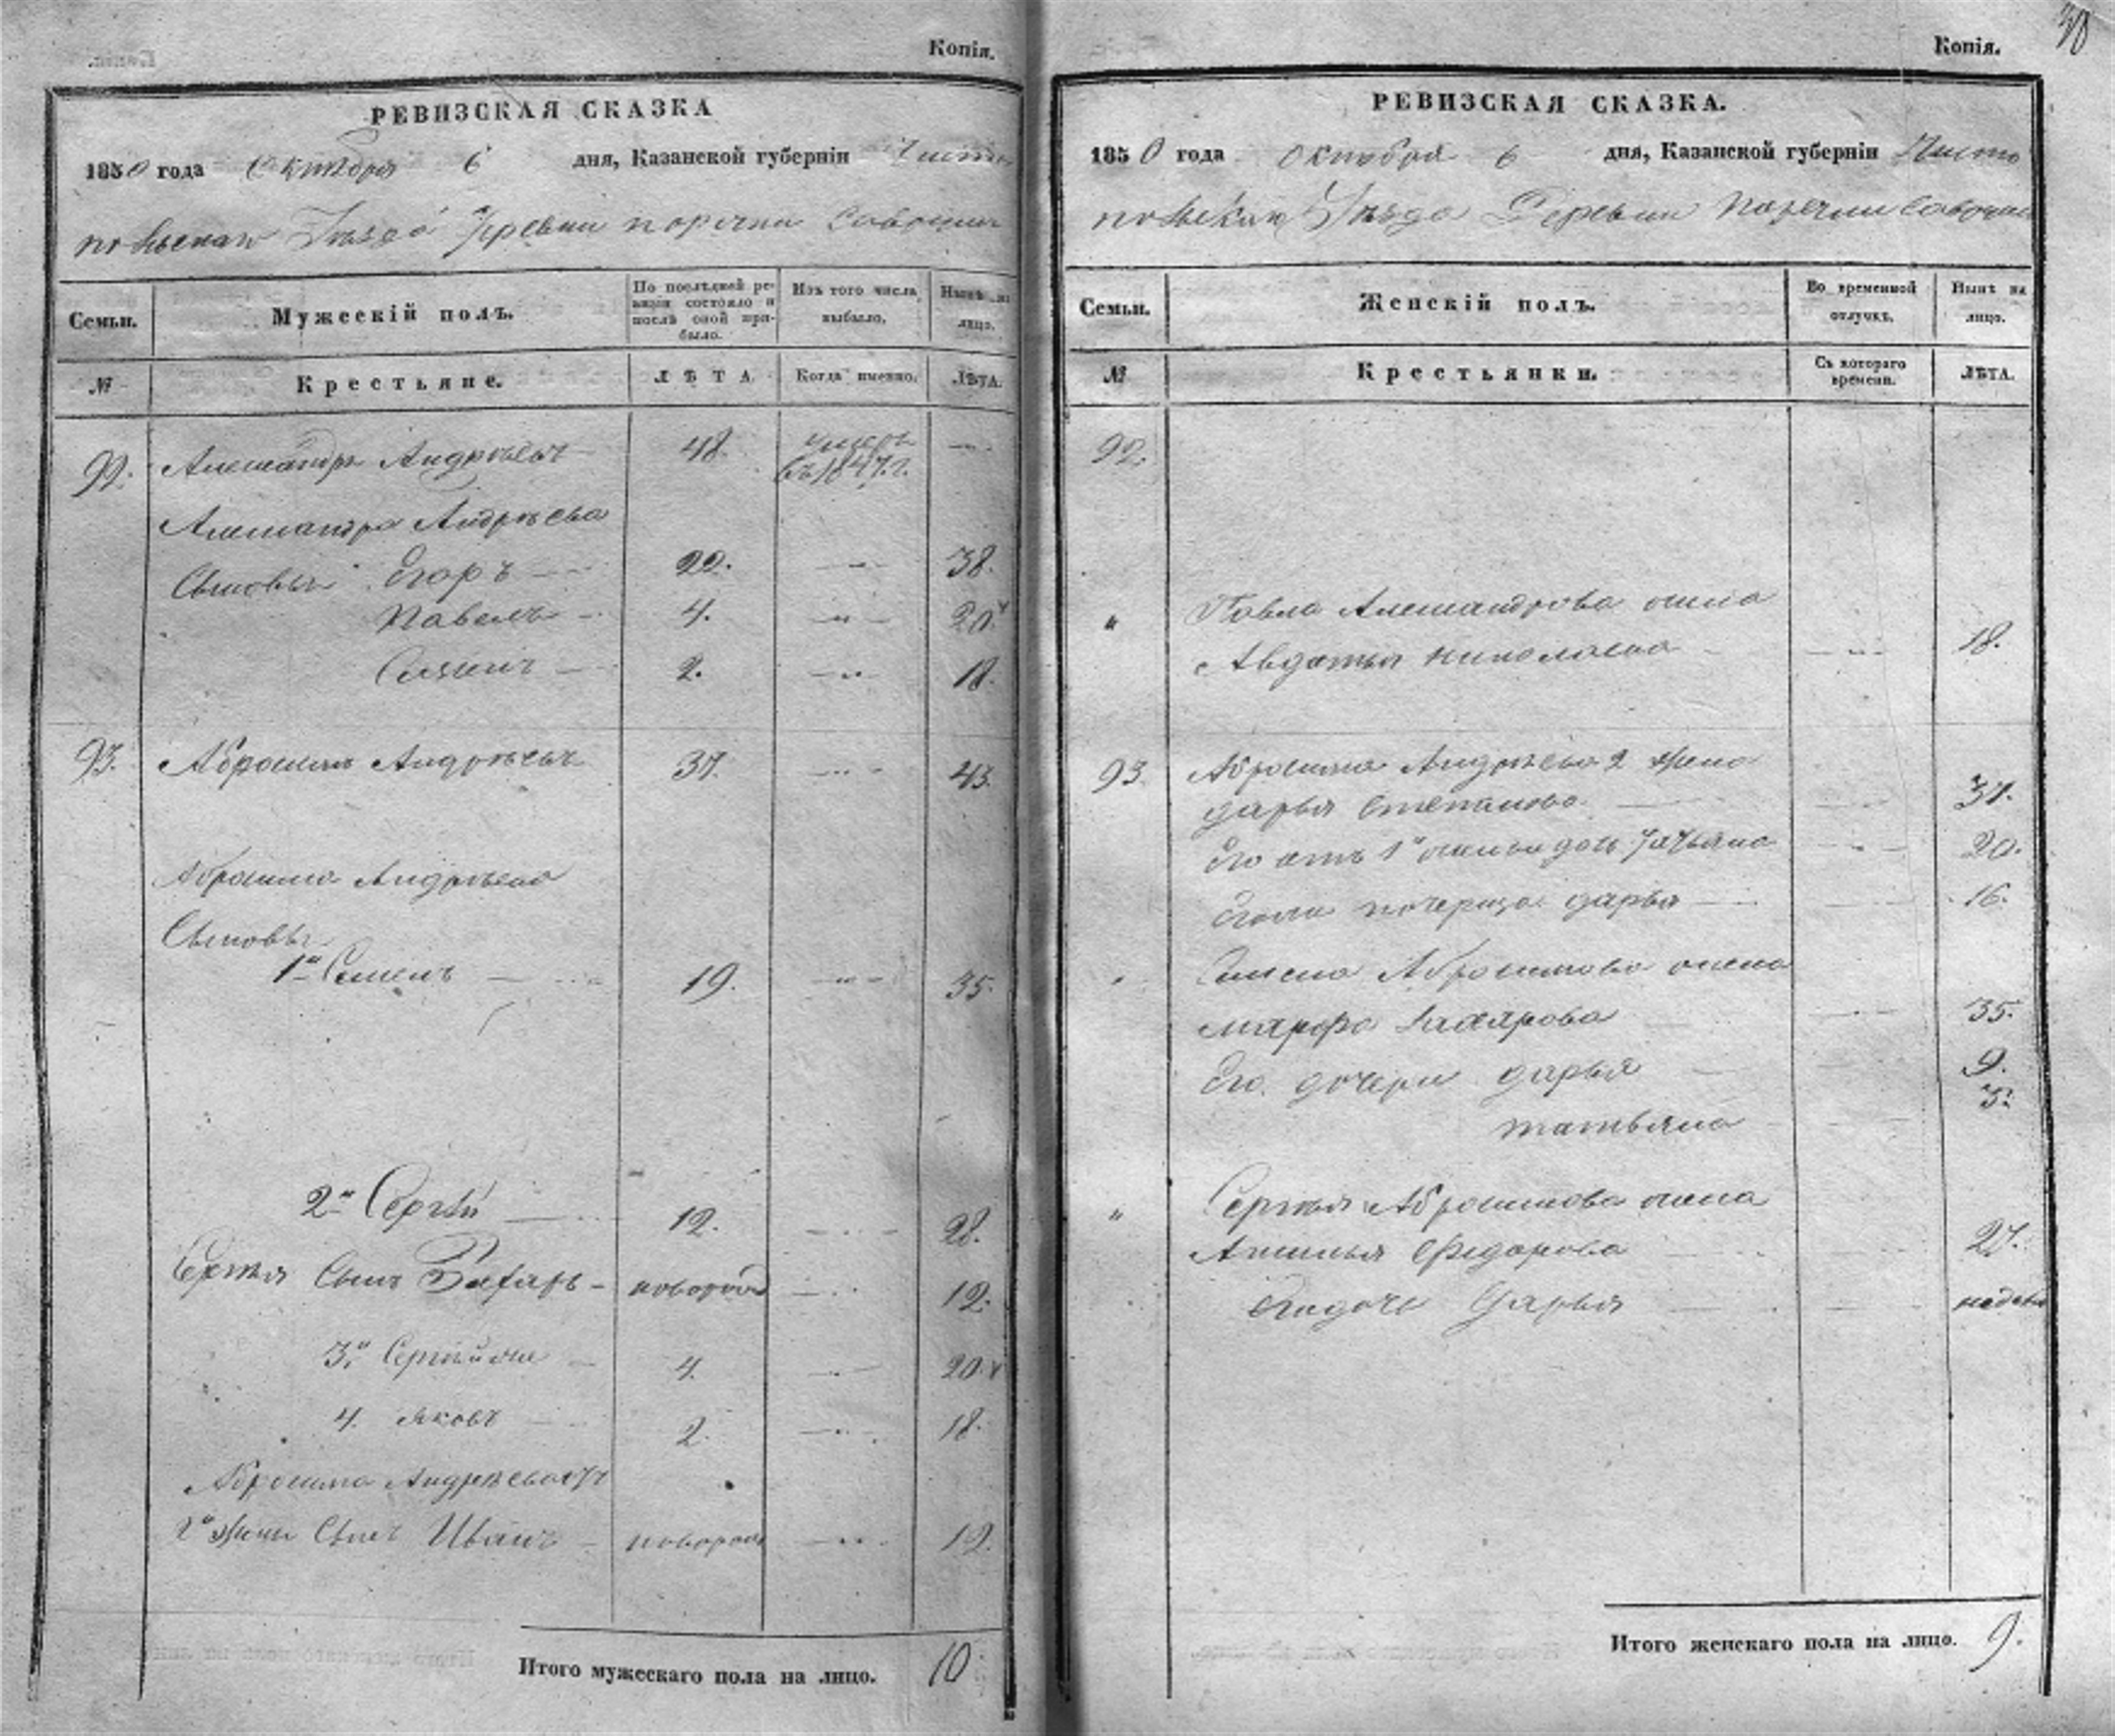 Копія.
РЕВИЗСКАЯ СКАЗКА
1850 года Октября 6 дня, Казанской губерніи Чисто
польскаго Уѣзда Деревни
Семьи.
Мужескій полъ.
По послѣдней ревизіи состояло и послѣ оной прибыло.
Изъ того числа выбыло.
Нынѣ на лицо.
№
Крестьяне.
ЛѢТА
Когда именно.
ЛѢТА.
92. Александръ Андрѣевъ 48. умеръ въ 1847. г. —
Александра Андрѣева
Сыновья Егоръ — 22. — " — 38.
Павелъ — 4. — " — 20.
2. — " — 18.
93. Абросимъ Андрѣевъ 37. — " —
Абросима Андрѣева
Сыновья
1й Семенъ — 19. — " — 35.
2й Сергѣй — 12. — 28.
Сергѣя Сынъ Захаръ — новорож 12.
3й 4. — 20.
4. Яковъ — 2. — " — 18.
Абросима Андрѣева отъ
2й жены Сынъ Иванъ — новорож — " — 12.
Итого мужескаго пола на лицо. 10.
38
Копія.
РЕВИЗСКАЯ СКАЗКА.
1850 года Октября 6 дня, Казанской губерніи Чисто
польскаго Уѣзда Деревни
Семьи.
Женскій полъ.
Во временной отлучкѣ.
Нынѣ на лицо.
№
Крестьянки.
Съ котораго времени.
ЛѢТА.
92.
" Павла Александрова жена
Авдотья Николаева — " — 18.
93. Абросима Андрѣева 2 жена
Дарья Степанова — 37.
Его отъ 1й жены дочь Татьяна — 20.
падчерица Дарья — 16.
" Семена Абросимова жена
Марфа Захарова — 35.
Его дочери Дарья — 9.
Татьяна 3.
" Сергѣя Абросимова жена
Аксинья Федорова 27.
Его дочь Дарья — недели
Итого женскаго пола на лицо. 9.